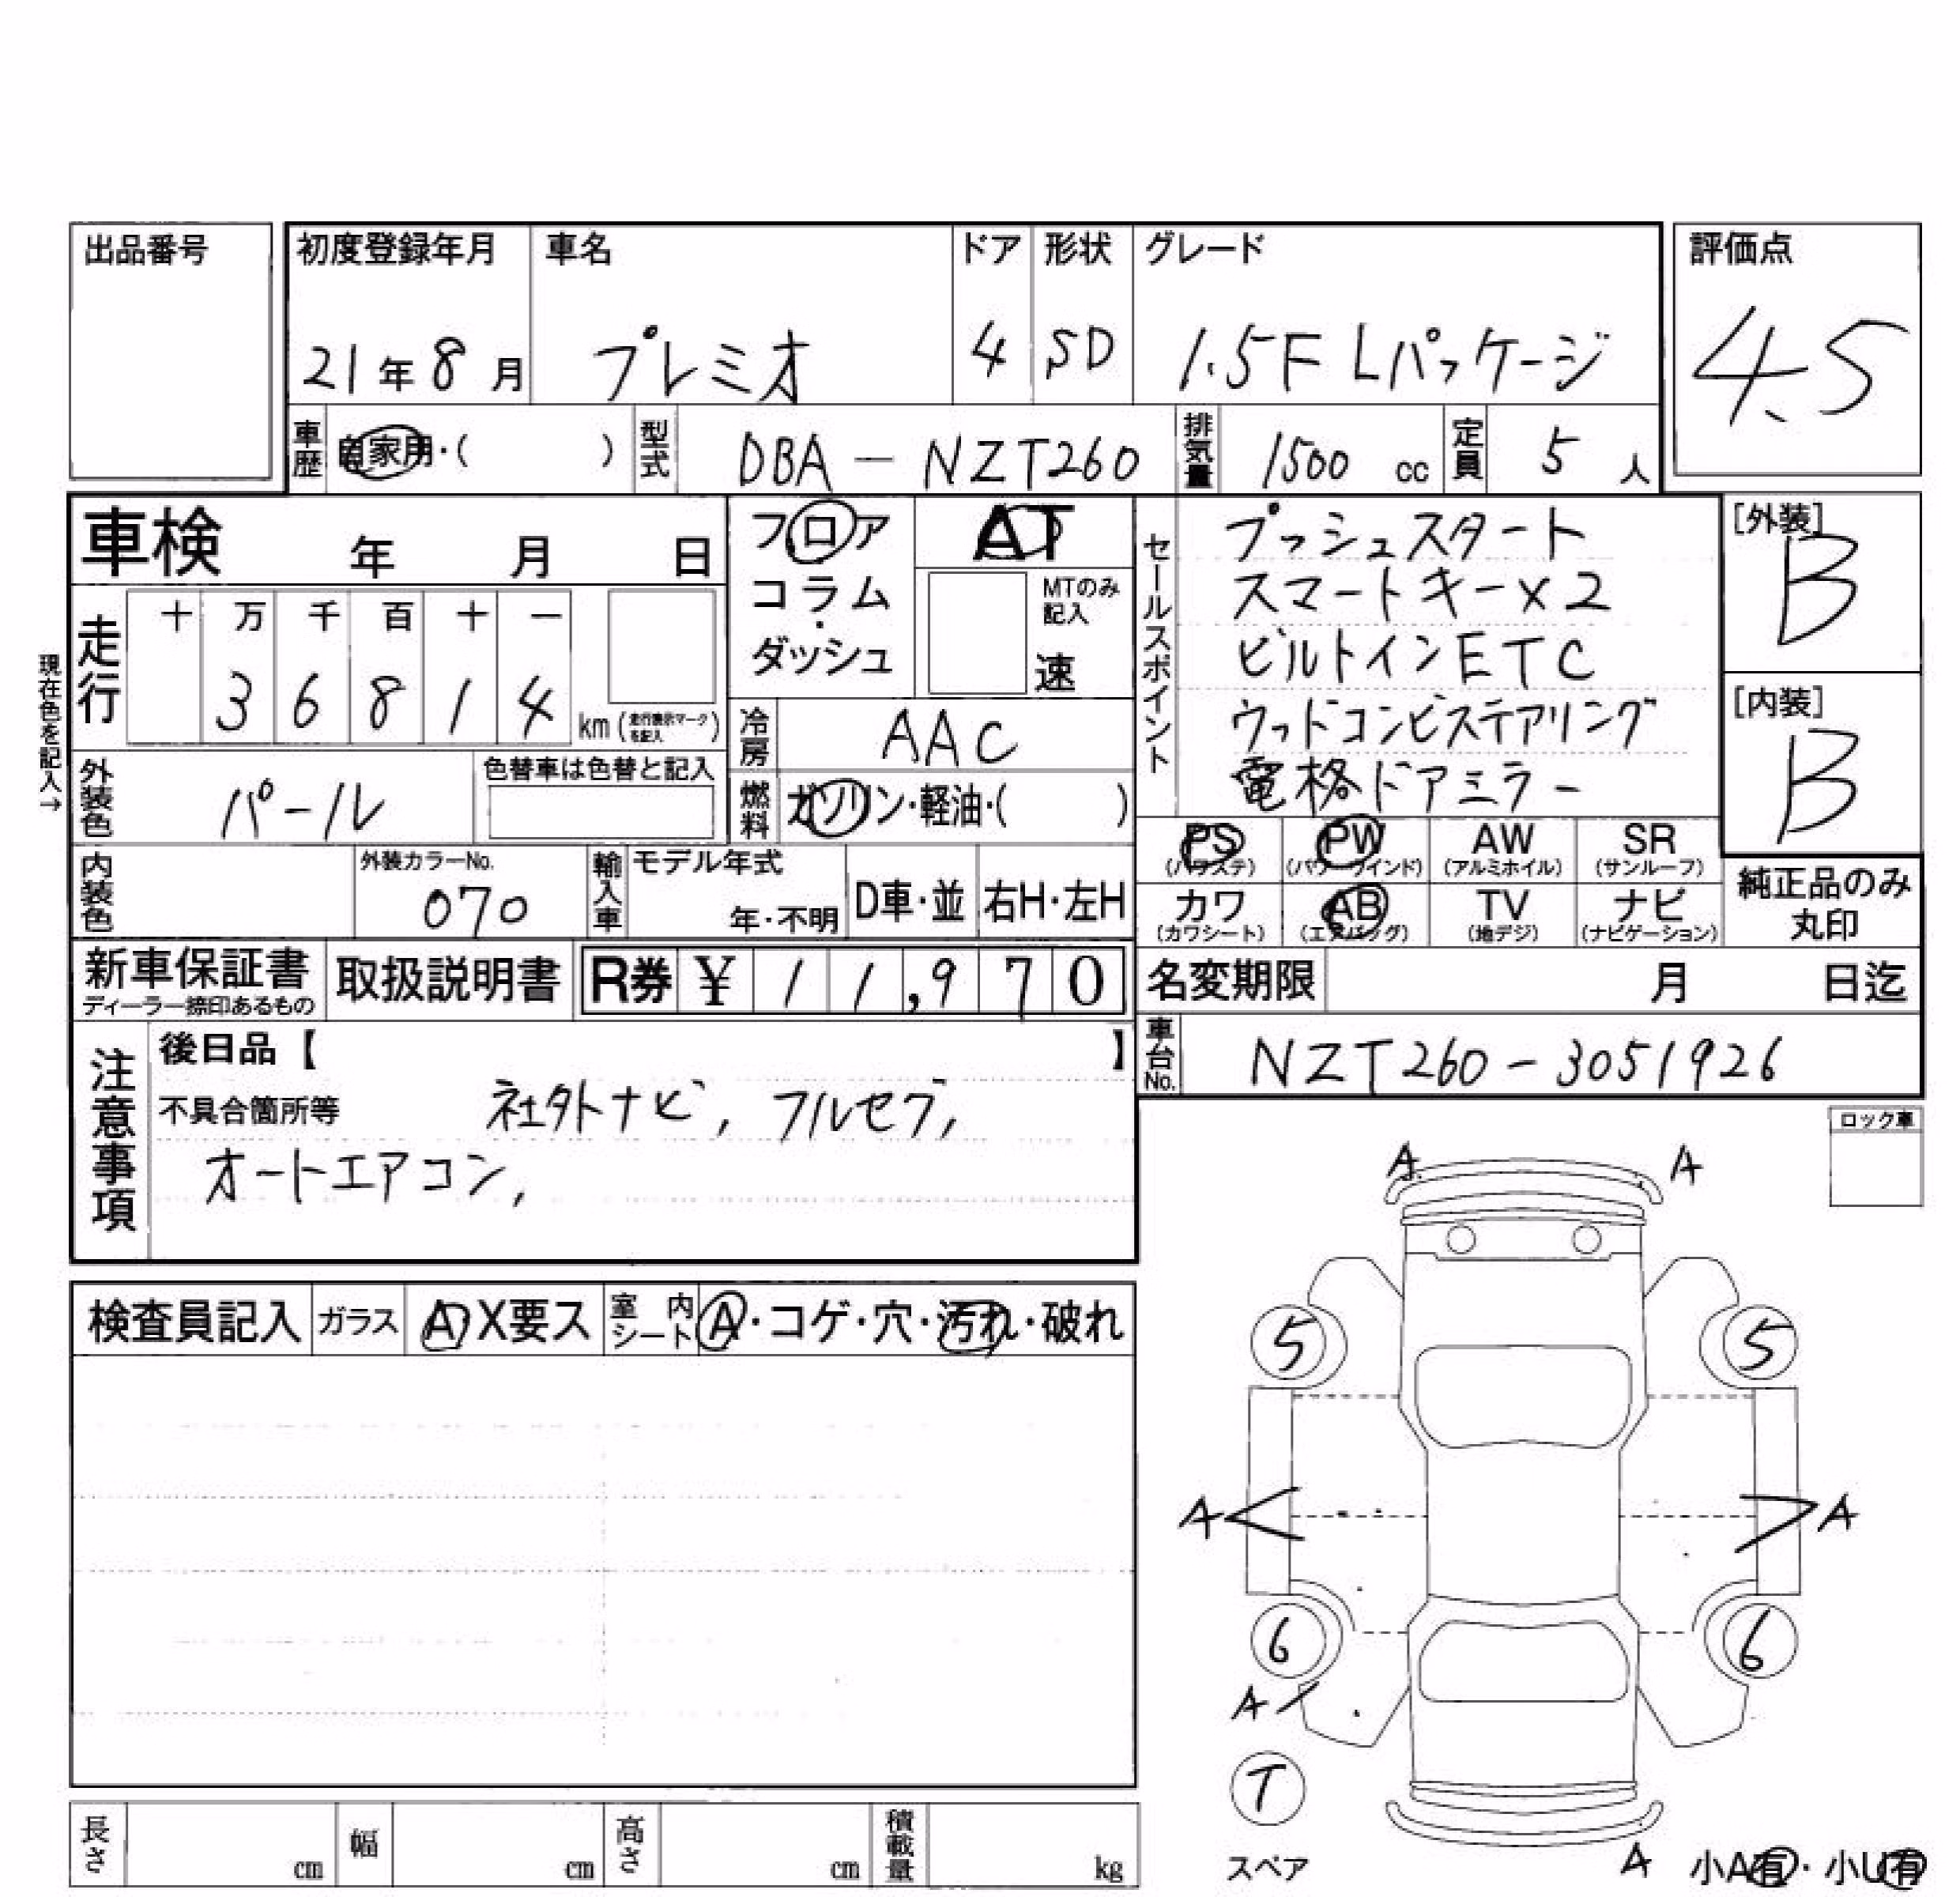 出品番号
初度登録年月 車名 ドア 形状 グレード 評価点
21年8月 プレミオ 4 SD 1.5F Lパッケージ 4.5
車歴 自家用・( ) 型式 DBA-NZT260 排気量 1500 cc 定員 5 人
車検 年 月 日
フロア AT
コラム・ MTのみ記入
ダッシュ 速
セールスポイント
プッシュスタート
スマートキー×2
ビルトインETC
ウッドコンビステアリング
電格ドアミラー
[外装] B
[内装] B
現在色を記入→
走行 十 万 千 百 十 一
3 6 8 1 4 km (走行表示マークを記入)
冷房 AAC
外装色 パール 色替車は色替と記入
燃料 ガソリン・軽油・( )
PS (パワステ) PW (パワーウインド) AW (アルミホイル) SR (サンルーフ)
カワ (カワシート) AB (エアバッグ) TV (地デジ) ナビ (ナビゲーション)
純正品のみ
丸印
内装色 外装カラーNo. 070 輸入車 モデル年式 年・不明 D車・並 右H・左H
新車保証書 取扱説明書 R券 ¥ 11,970 名変期限 月 日迄
ディーラー捺印あるもの
車台No. NZT260-3051926
注意事項
後日品【 】
不具合箇所等 社外ナビ, フルセグ,
オートエアコン,
ロック車
A A
検査員記入 ガラス A・X要ス 室内シート A・コゲ・穴・汚れ・破れ
5 5
A A
6 6
A
T
スペア A 小A有・小U有
長さ cm 幅 cm 高さ cm 積載量 kg